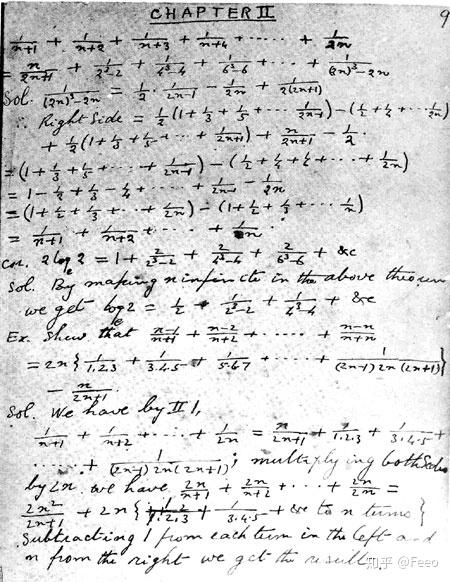 CHAPTER II
9
1/(n+1) + 1/(n+2) + 1/(n+3) + 1/(n+4) + ..... + 1/2n
= n/(2n+1) + 1/(2³-2) + 1/(4³-4) + 1/(6³-6) + ... + 1/((2n)³-2n)
Sol. 1/((2n)³-2n) = 1/2 · 1/(2n-1) - 1/2n + 1/(2(2n+1))
∴ Right Side = 1/2(1 + 1/3 + 1/5 + ... 1/(2n-1)) - (1/2 + 1/4 + ... 1/2n)
+ 1/2(1 + 1/3 + 1/5 + ... + 1/(2n+1)) + n/(2n+1) - 1/2.
= (1 + 1/3 + 1/5 + ... + 1/(2n-1)) - (1/2 + 1/4 + 1/6 + ... + 1/2n)
= 1 - 1/2 + 1/3 - 1/4 + ... + 1/(2n-1) - 1/2n
= (1 + 1/2 + 1/3 + ... + 1/2n) - (1 + 1/2 + 1/3 + ... 1/n)
= 1/(n+1) + 1/(n+2) + ... + 1/2n.
Cor. 2 logₑ2 = 1 + 2/(2³-2) + 2/(4³-4) + 2/(6³-6) + &c
Sol. By making n infinite in the above theorem
we get logₑ2 = 1/2 + 1/(2³-2) + 1/(4³-4) + &c
Ex. Shew that (n-1)/(n+1) + (n-2)/(n+2) + ..... + (n-n)/(n+n)
= 2n{1/1.2.3 + 1/3.4.5 + 1/5.6.7 + ... + 1/((2n-1) 2n (2n+1))}
- n/(2n+1).
Sol. We have by II 1,
1/(n+1) + 1/(n+2) + .... + 1/2n = n/(2n+1) + 1/1.2.3 + 1/3.4.5 +
..... + 1/((2n-1) 2n (2n+1)); multiplying both sides
by 2n we have 2n/(n+1) + 2n/(n+2) + ... + 2n/2n =
2n²/(2n+1) + 2n{1/1.2.3 + 1/3.4.5 + &c to n terms}
Subtracting 1 from each term in the left and
n from the right we get the result.
知乎 @Feeo